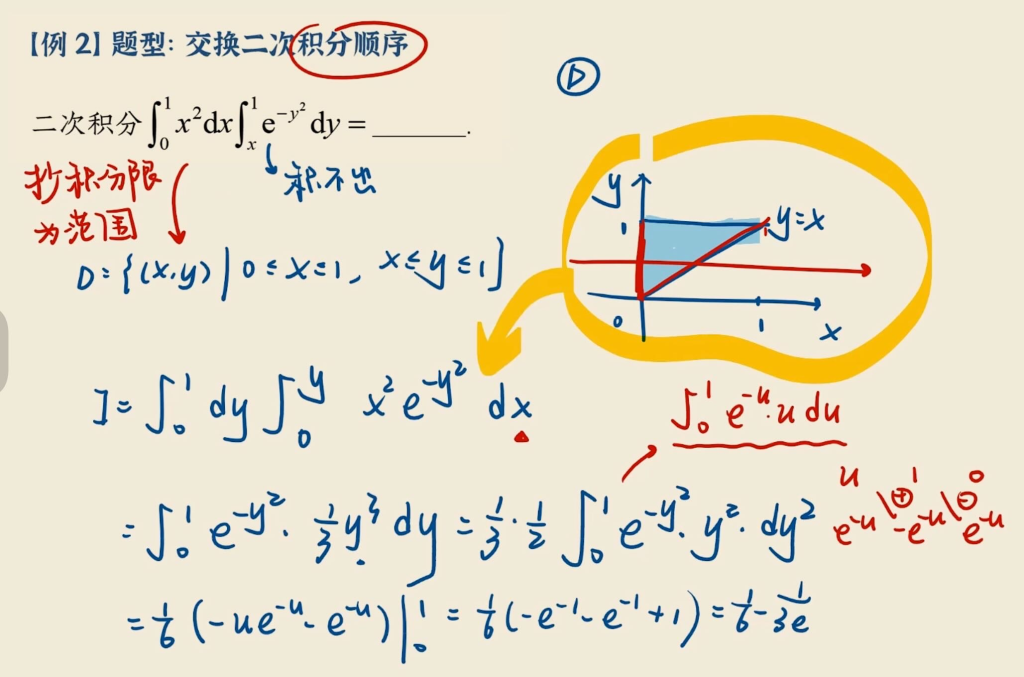 【例 2】题型: 交换二次积分顺序
二次积分∫₀¹x²dx∫ₓ¹e^{-y²}dy = ______.
积不出
抄积分限
为范围
D={(x,y)|0≤x≤1, x≤y≤1}
D
y
1
y=x
0
1
x
I=∫₀¹dy∫₀^y x²e^{-y²}dx
∫₀¹e^{-u}·u du
=∫₀¹e^{-y²}·1/3y³dy=1/3·1/2∫₀¹e^{-y²}·y²·dy²
u 1 0
⊕ ⊖
e^{-u} -e^{-u} e^{-u}
=1/6(-ue^{-u}-e^{-u})|₀¹=1/6(-e^{-1}-e^{-1}+1)=1/6-1/3e